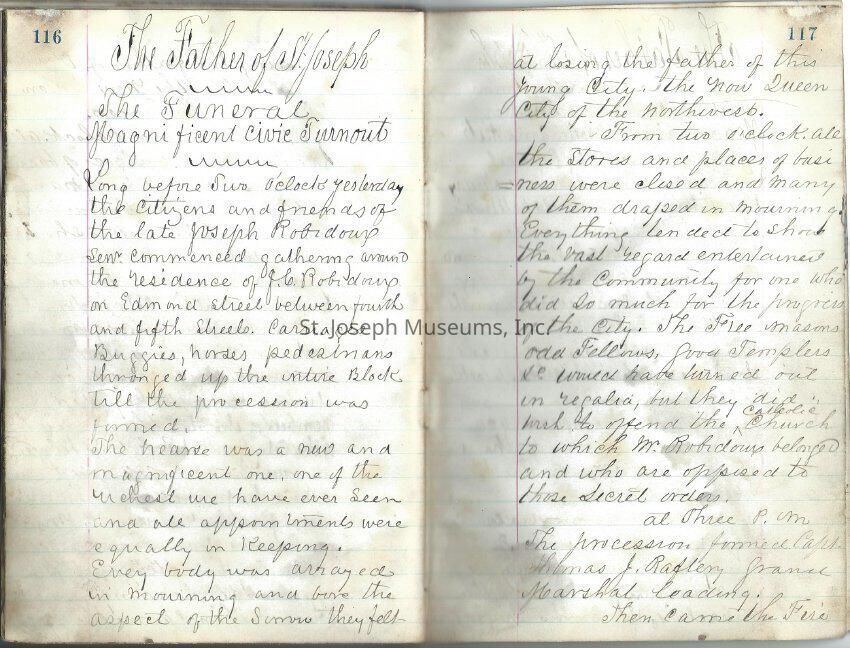 116
The Father of St. Joseph
The Funeral
Magnificent Civic Turnout
Long before Two o'clock yesterday
the Citizens and friends of
the late Joseph Robidoux
Senr. commenced gathering around
the residence of J.C. Robidoux
on Edmond Street between fourth
and fifth Streets. Carriages
Buggies, horses pedestrians
thronged up the intire Block
till the procession was
formed.
The hearse was a new and
magnificent one, one of the
richest we have ever seen
and all appointments were
equally in Keeping.
Every body was arrayed
in mourning and bore the
aspect of the Sorrow they felt
117
at losing the father of this
young City. the now Queen
City of the northwest.
From two o'clock all
the Stores and places of busi
ness were closed and many
of them draped in mourning.
Everything tended to show
the vast regard entertained
by the Community for one who
did so much for the progress
of the City. The Free masons
odd Fellows, Good Templers
&c would have turned out
in regalia, but they did
wish to offend the Catholic Church
to which Mr. Robidoux belonged
and who are opposed to
those Secret orders.
at Three P. m
The procession formed Capt.
Thomas J. Raftery Grand
Marshal leading.
Then came the Fire
St. Joseph Museums, Inc